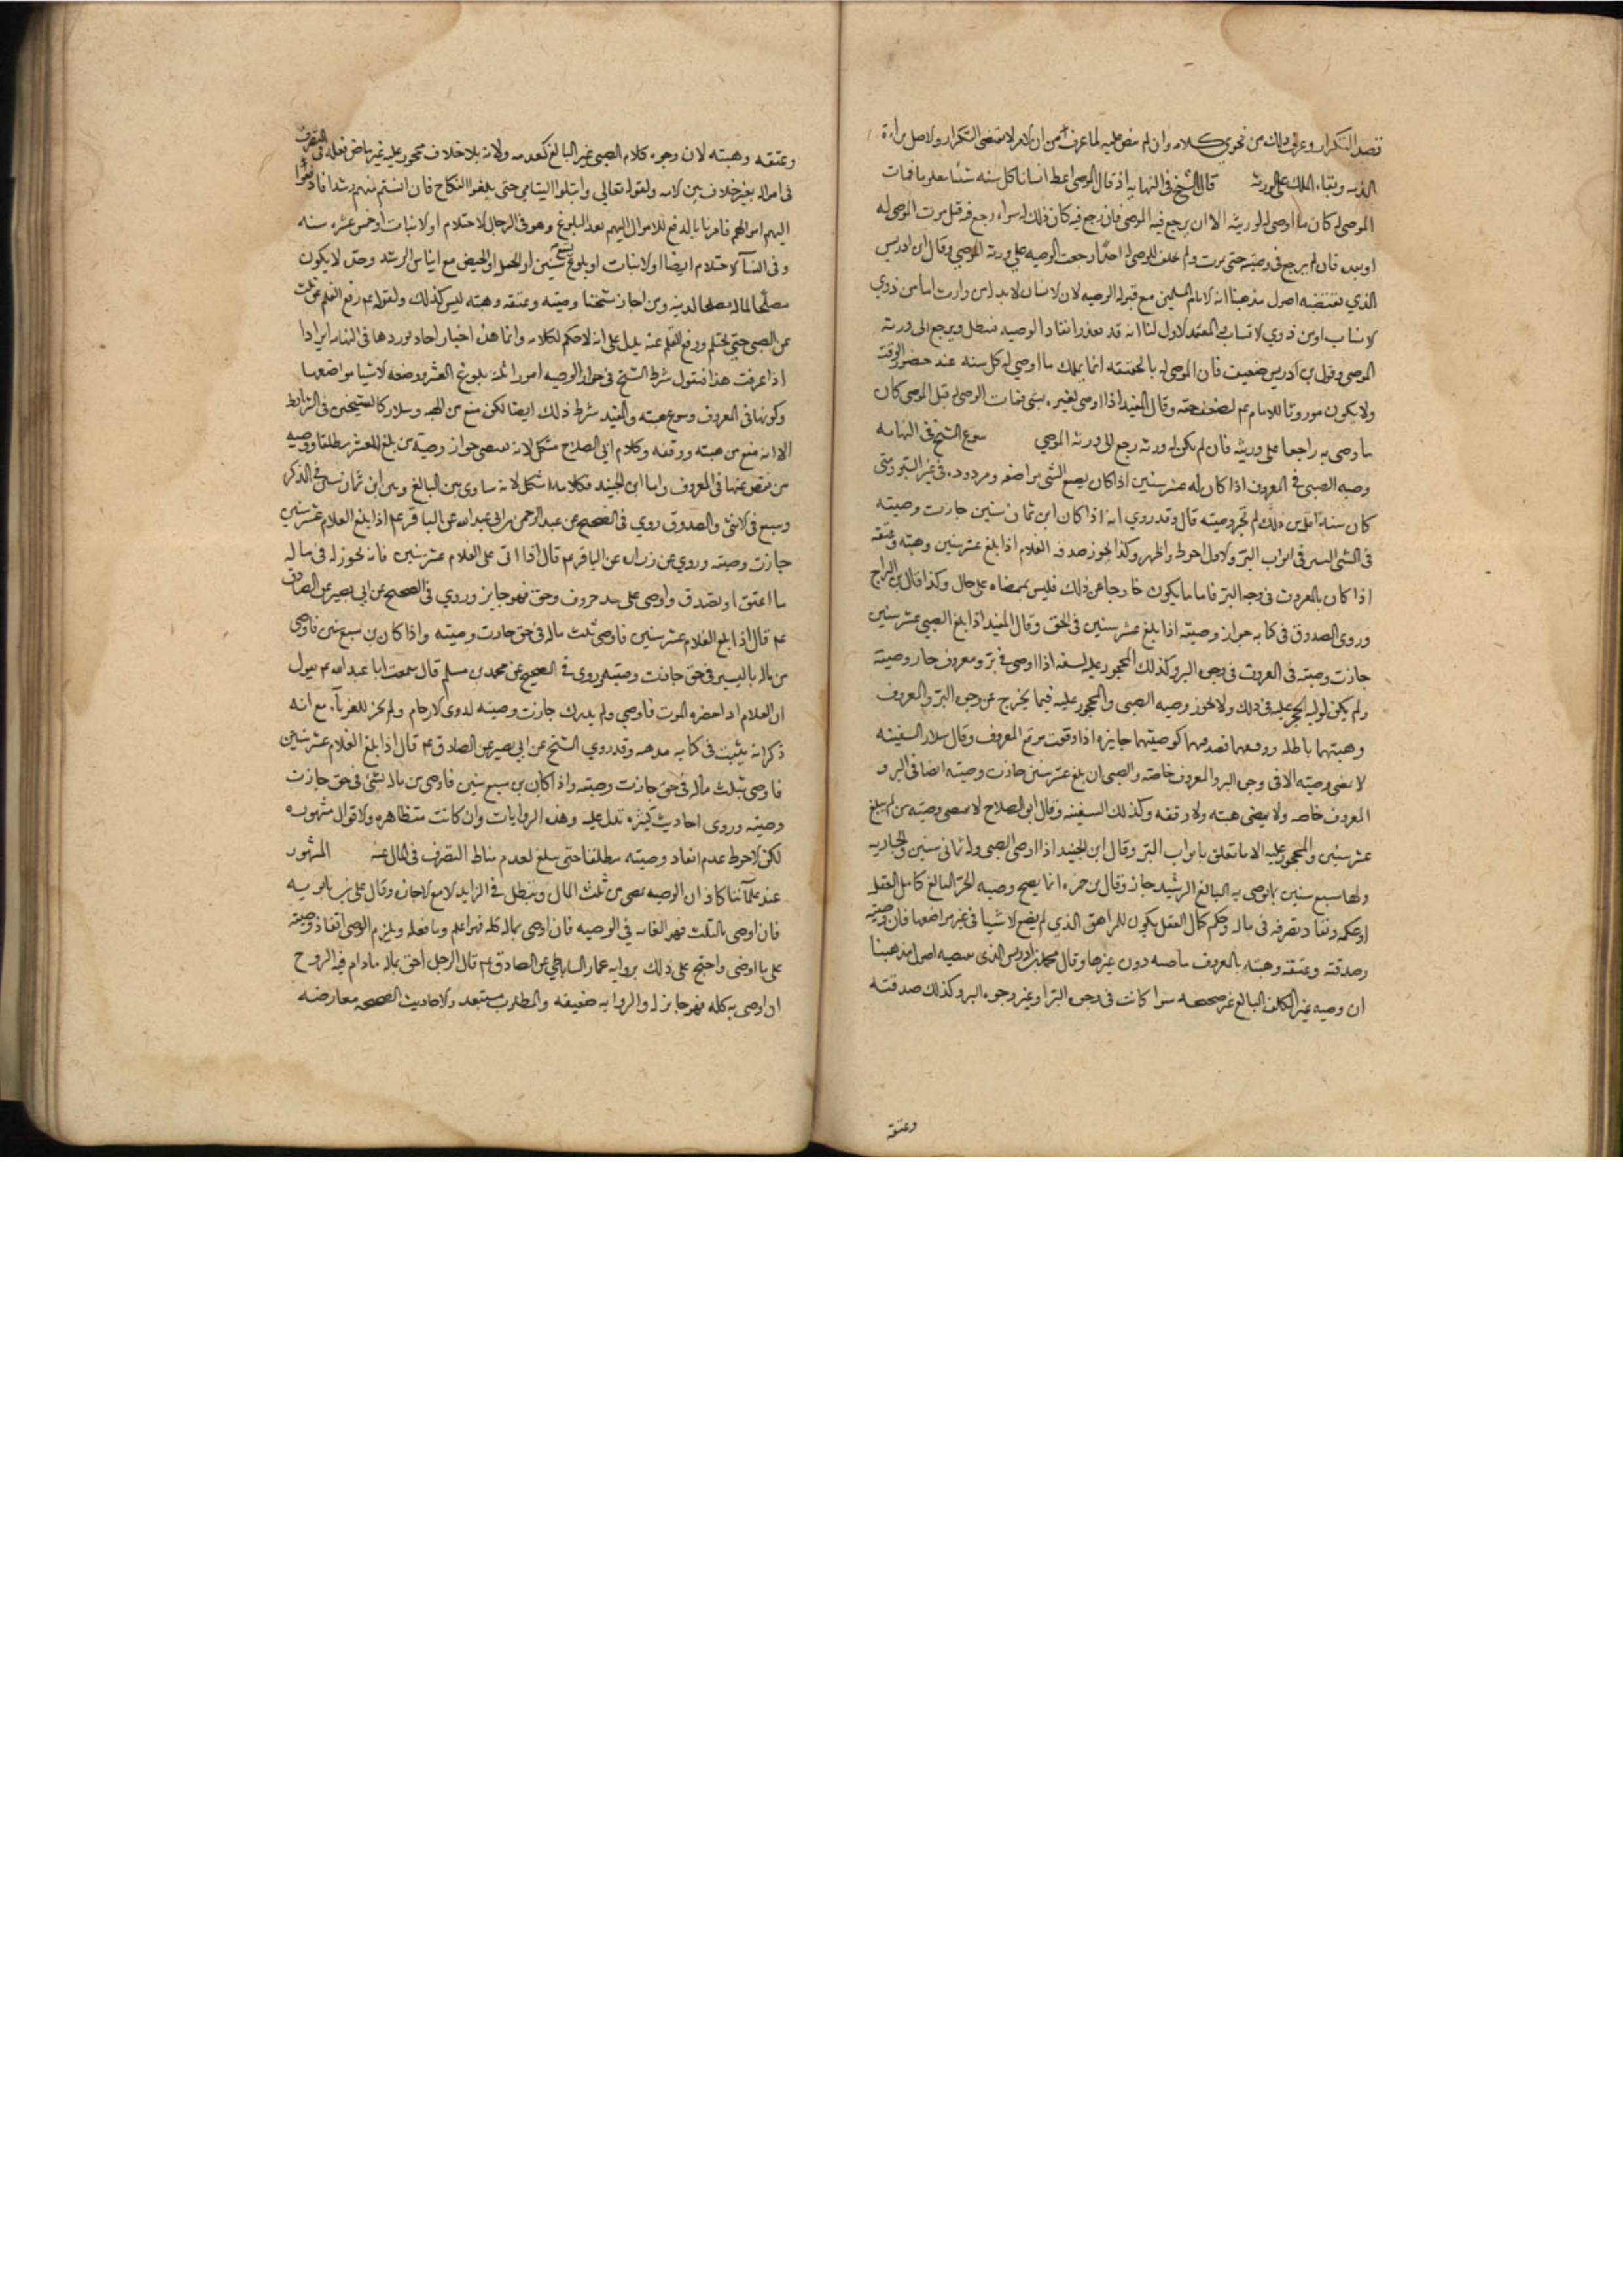 قصد التكرار وعرف ذلك من فحوى كلامه وان لم ينص عليه لما عرف من ان الامر لا يقتضى التكرار ولاصل براءة
الذمه وبقاء الملك على الورثه قال الشيخ فى النهايه اذ قال الموصى اعط انسانا كل سنه شئا معلوما فمات
الموصى له كان ما اوصى له لورثته الا ان يرجع فيه الموصى فان رجع فيه كان ذلك له سواء رجع فيه قبل موت الموصى له
او بعده فان لم يرجع فى وصيته حتى يموت ولم يخلف الموصى له احدًا رجعت الوصيه على ورثه الموصي وقال ابن ادريس
الذي تقتضيه اصول مذهبنا انه لامام المسلمين مع قبوله الوصيه لان لانسان لابد له من وارث اما من ذوي
لانساب او من ذوي لاسباب والمعتمد لاول لنا انه قد تعذر انفاذ الوصيه فتبطل ويرجع الى ورثه
الموصى وقول بن ادريس ضعيف فان الموصى له بالحقيقه انما يملك ما اوصي له كل سنه عند حضور الوقت
ولا يكون موروثا للامام عم لضعف حقه وقال المفيد اذا اوصى لغيره بشى فمات الموصى له قبل الموصى كان
ما وصى به راجعا على ورثته فان لم يكن له ورثه رجع الى ورثه الموصي سوغ الشيخ فى النهايه
وصيه الصبى فى المعروف اذا كان له عشر سنين اذا كان يضع الشى مواضعه ومردود فى غير البر ومتى
كان سنه اقل من ذلك لم تجز وصيته قال وقد روي انه اذا كان ابن ثمان سنين جازت وصيته
فى الشى اليسير فى ابواب البر ولاول احوط واظهر وكذا تجوز صدقه الغلام اذا بلغ عشر سنين وهبته وعتقه
اذا كان بالمعروف فى وجه البر فاما ما يكون خارجا عن ذلك فليس بممضاه على حال وكذا قال بن البراج
وروى الصدوق فى كتابه جواز وصيته اذا بلغ عشر سنين فى الحق وقال المفيد اذا بلغ الصبى عشر سنين
جازت وصيته فى المعروف فى وجوه البر وكذلك المحجور عليه لسفه اذا اوصى فى بر ومعروف جاز وصيته
ولم يكن لوليه الحجر عليه فى ذلك ولا تجوز وصيه الصبى والمحجور عليه فيما يخرج عن وجوه البر والمعروف
وهبتهما باطله ووقفهما وصدقتهما كوصيتهما جايزه اذا وقعت موقع المعروف وقال سلار السفيه
لا تمضى وصيته الا فى وجوه البر والمعروف خاصه والصبى ان بلغ عشر سنين جازت وصيته ايضا فى البر و
المعروف خاصه ولا يمضى هبته ولا وقفه وكذلك السفيه وقال ابو الصلاح لا تمضى وصيه من لم يبلغ
عشر سنين والمحجور عليه الا ما تعلق بابواب البر وقال ابن الجنيد اذا اوصى الصبى وله ثمانى سنين والجاريه
ولها سبع سنين بما يوصى به البالغ الرشيد جاز وقال بن حمزه انما يصح وصيه الحر البالغ كامل العقل
او حكمه ونفاذ تصرفه فى ماله وحكم كمال العقل يكون للمراهق الذي لم يضع لاشيا فى غير مواضعها فان وصيته
وصدقته وعتقه وهبته بالمعروف ماضيه دون غيرها وقال محمد بن ادريس الذى يقتضيه اصول مذهبنا
ان وصيه غير المكلف البالغ غير صحيحه سوا كانت فى وجوه البر او غير وجوه البر وكذلك صدقته
وعتقه
وعتقه وهبته لان وجود كلام الصبى غير البالغ كعدمه ولانه بلا خلاف محجور عليه غير ماض فعله فى التصرف
فى امواله بغير خلاف بين لامه ولقوله تعالى وابتلوا اليتامى حتى اذا بلغوا النكاح فان انستم منهم رشدا فادفعوا
اليهم اموالهم فامرنا بالدفع للاموال اليهم بعد البلوغ وهو فى الرجال لاحتلام او لانبات او خمس عشره سنه
وفى النسآ لاحتلام ايضا او لانبات او بلوغ تسع سنين او الحمل او الحيض مع ايناس الرشد وحده لا يكون
مصلحا لماله مصلحا لدينه ومن اجاز شيخنا وصيته وعتقه وهبته ليس كذلك ولقوله عم رفع القلم عن ثلث
عن الصبى حتى يحتلم ورفع القلم عنه يدل على انه لا حكم لكلامه وانما هذه اخبار احاد يوردها فى النهايه ايرادا
اذا عرفت هذا فنقول شرط الشيخ فى جواز الوصيه امورا ثلثه بلوغ العشر ووضعه لاشيا مواضعها
وكونها فى المعروف وسوغ هبته والمفيد شرط ذلك ايضا لكن منع من الهبه وسلار كالشيخين فى الشرايط
الا انه منع من هبته ووقفه وكلام ابي الصلاح مشكل لانه يقتضى جواز وصيه من بلغ العشر مطلقا ووصيه
من نقص عنها فى المعروف واما ابن الجنيد فكلامه اشكل لانه ساوى بين البالغ وبين ابن ثمان سنين فى الذكر
وسبع فى لانثى والصدوق روي فى الصحيح عن عبد الرحمن بن ابى عبد الله عن الباقر عم اذا بلغ الغلام عشر سنين
جازت وصيته وروي عن زراره عن الباقر عم قال اذا اتى على الغلام عشر سنين فانه يجوز له فى ماله
ما اعتق او تصدق واوصى على حد معروف وحق فهو جايز وروي فى الصحيح عن ابي بصير عن الصادق
عم قال اذا بلغ الغلام عشر سنين فاوصى بثلث ماله فى حق جازت وصيته واذا كان بن سبع سنين فاوصى
من ماله باليسير فى حق جازت وصيته وروى فى الصحيح عن محمد بن مسلم قال سمعت ابا عبد الله عم يقول
ان الغلام اذا حضره الموت فاوصي ولم يدرك جازت وصيته لذوى لارحام ولم تجز للغربآء مع انه
ذكر انه يثبت فى كتابه مذهبه وقد روي الشيخ عن ابى بصير عن الصادق عم قال اذا بلغ الغلام عشر سنين
فاوصى بثلث ماله فى حق جازت وصيته واذا كان بن سبع سنين فاوصى من ماله بشئ فى حق جازت
وصيته وروى احاديث كثيره تدل عليه وهذه الروايات وان كانت متظاهره ولاقوال مشهوره
لكن لاحوط عدم انفاذ وصيته مطلقا حتى يبلغ لعدم مناط التصرف فى المال عنه المشهور
عند علمآئنا كافه ان الوصيه تمضى من ثلث المال وتبطل فى الزايد لا مع لاجازه وقال على بن بابويه
فان اوصى بالثلث فهو الغايه في الوصيه فان اوصى بماله كله فهو اعلم وما فعله ويلزم الوصى انفاذ وصيته
على ما اوصى واحتج على ذلك بروايه عمار الساباطي عن الصادق عم قال الرجل احق بماله مادام فيه الروح
ان اوصى به كله فهو جايز له والروايه ضعيفه والمطلوب مستبعد ولاحاديث الصحيحه معارضه